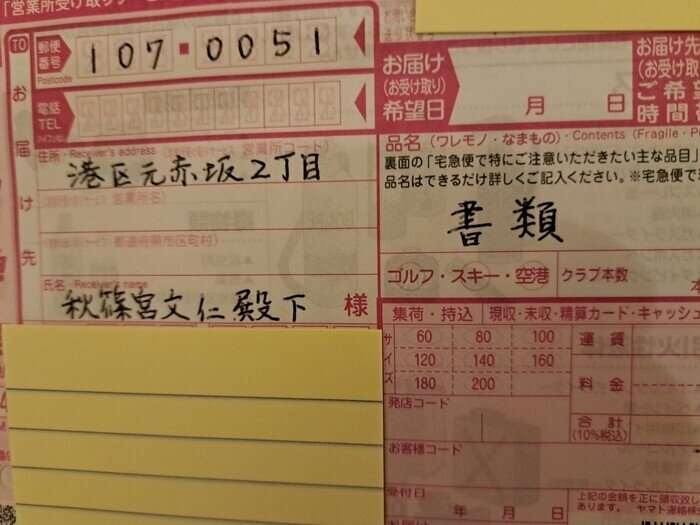 「営業所受け取りサービ
TO
お届け先
郵便番号
Postcode
107-0051
電話
TEL
住所・Receiver's address
港区元赤坂2丁目
氏名・Receiver's name
秋篠宮文仁殿下 様
お届け
(お受け取り)
希望日
月 日
お届け先
(お受け取り)
ご希望
時間
品名(ワレモノ・なまもの)・Contents (Fragile・P
裏面の「宅急便で特にご注意いただきたい主な品目」
品名はできるだけ詳しくご記入ください。※宅急便で
書類
ゴルフ・スキー・空港 クラブ本数
集荷・持込 現収・未収・精算カード・キャッシュ
サイズ
60 80 100
120 140 160
180 200
運賃
料金
合計
(10%税込)
発店コード
お客様コード
受付日
年 月 日
上記の金額を正に領収致し
ます。 ヤマト運輸株